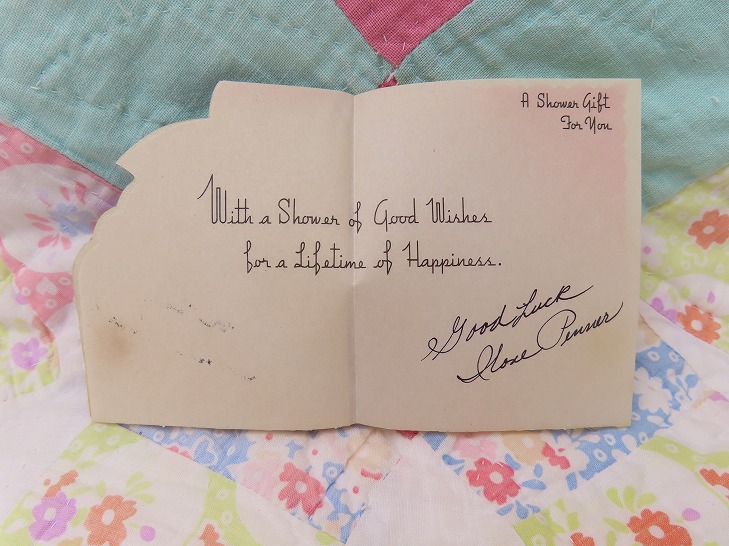 A Shower Gift
For You
With a Shower of Good Wishes
for a Lifetime of Happiness.
Good Luck
Penner